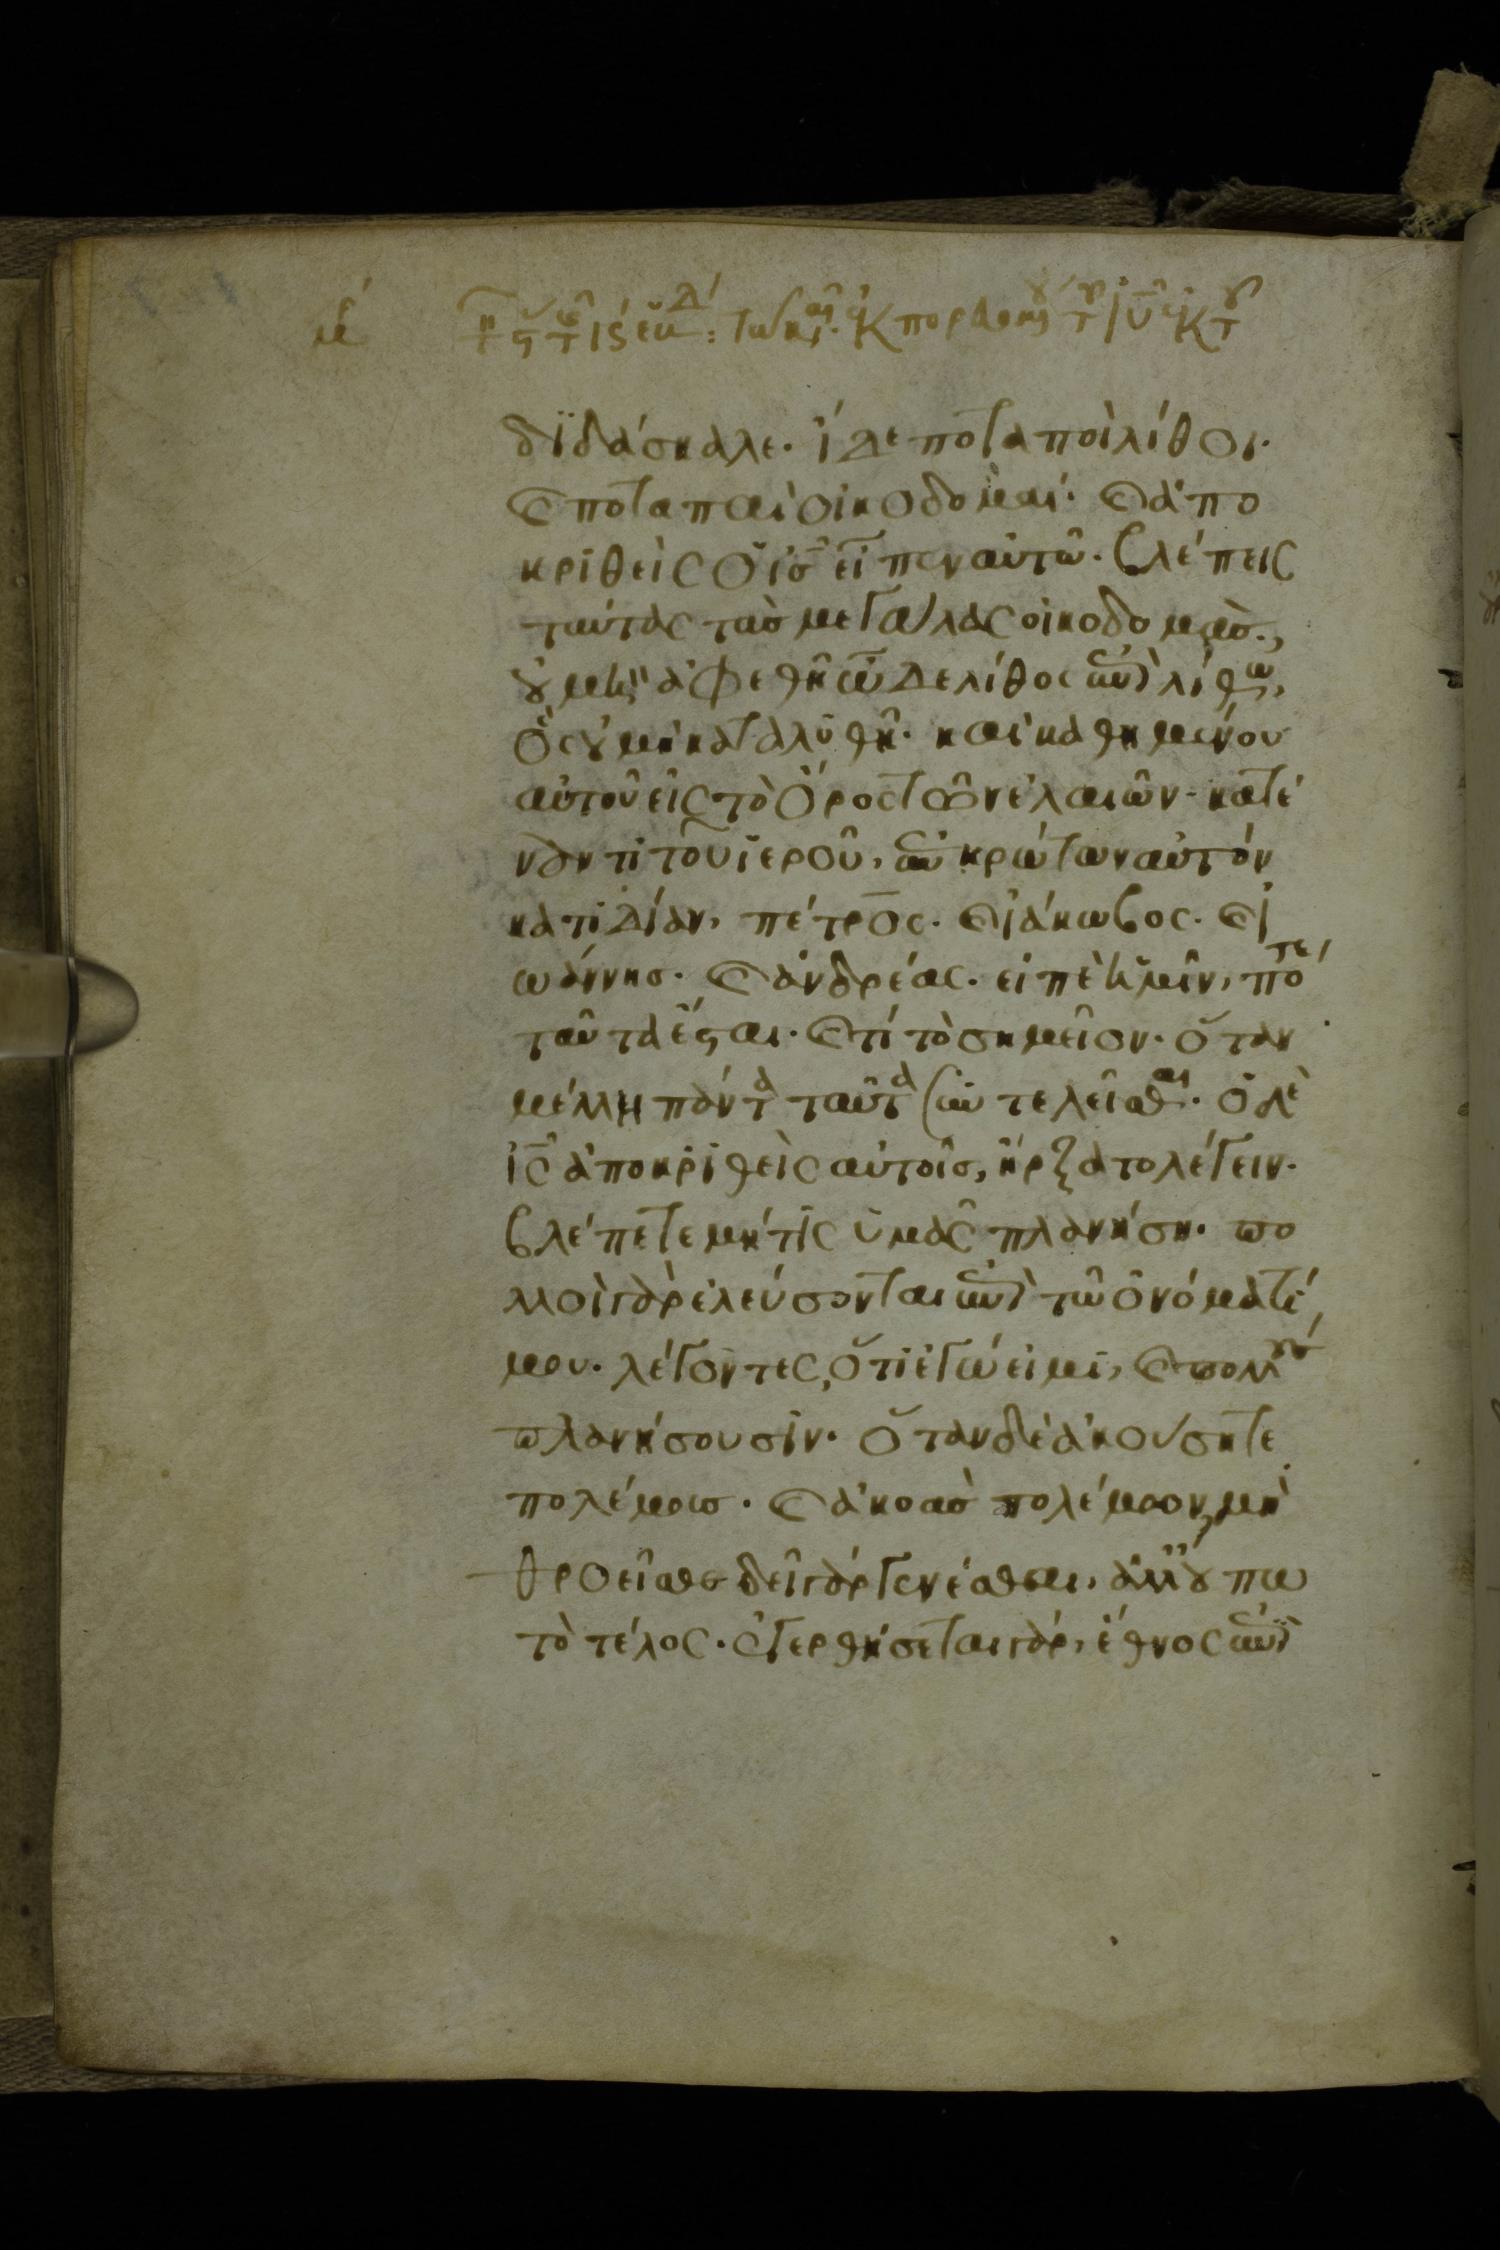 διδάσκαλε. ἴδε ποταποὶ λίθοι.
καὶ ποταπαὶ οἰκοδομαί. καὶ ἀπο
κριθεὶς ὁ ις εἶπεν αὐτῶ. βλέπεις
ταύτας τὰς μεγάλας οἰκοδομὰς.
οὐ μὴ ἀφεθῆ ὧδε λίθος ἐπὶ λίθω,
ὃς οὐ μὴ καταλυθῆ. καὶ καθημένου
αὐτοῦ εἰς τὸ ὄρος τῶν ἐλαιῶν. κατέ
ναντι τοῦ ἱεροῦ, ἐπηρώτων αὐτὸν
κατιδίαν, πέτρος. καὶ ἰάκωβος. καὶ ἰ
ωάννης. καὶ ἀνδρέας. εἰπὲ ἡμῖν, πότε
ταῦτα ἔσται. καὶ τί τὸ σημεῖον. ὅταν
μέλλη πάντα ταῦτα συντελεῖσθαι. ὁ δὲ
ις ἀποκριθεὶς αὐτοῖς, ἤρξατο λέγειν.
βλέπετε μή τις ὑμᾶς πλανήση. πο
λλοὶ γὰρ ἐλεύσονται ἐπὶ τῶ ὀνόματί
μου. λέγοντες, ὅτι ἐγώ εἰμι, καὶ πολλοὺς
πλανήσουσιν. ὅταν δὲ ἀκούσητε
πολέμους. καὶ ἀκοὰς πολέμων, μὴ
θροεῖσθε δεῖ γὰρ γενέσθαι, ἀλλ' οὔπω
τὸ τέλος. ἐγερθήσεται γὰρ, ἔθνος ἐπὶ